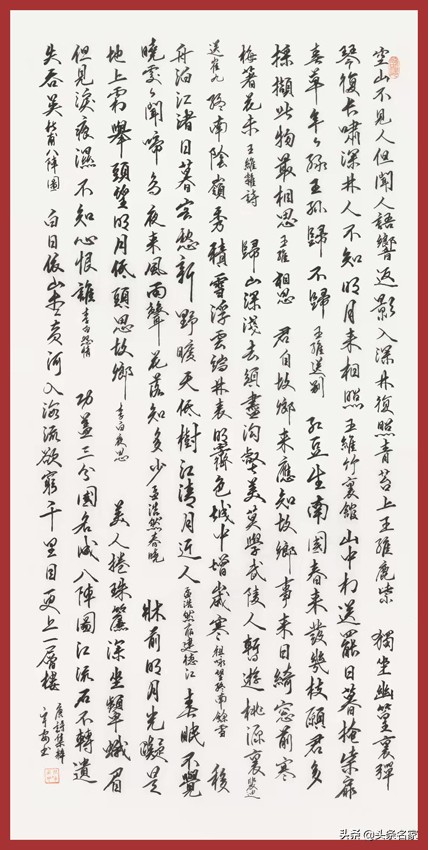 空山不見人但聞人語響返影入深林復照青苔上王維鹿柴 獨坐幽篁裏彈
琴復長嘯深林人不知明月來相照王維竹裏館 山中相送罷日暮掩柴扉
春草年々綠王孫歸不歸王維送別 紅豆生南國春來發幾枝願君多
採擷此物最相思王維相思 君自故鄉來應知故鄉事來日綺窓前寒
梅著花未王維雜詩 歸山深淺去須盡沟壑美莫學武陵人暫遊桃源裏裴迪
送崔九 終南陰嶺秀積雪浮雲端林表明霽色城中增歲寒祖詠望終南餘雪 移
舟泊江渚日暮客愁新野曠天低樹江清月近人孟浩然宿建德江 春眠不覺
曉處々聞啼鳥夜來風雨聲花落知多少孟浩然春曉 牀前明月光疑是
地上霜舉頭望明月低頭思故鄉李白夜思 美人捲珠簾深坐顰蛾眉
但見淚痕濕不知心恨誰李白怨情 功蓋三分國名成八陣圖江流石不轉遺
失吞吳杜甫八陣圖 白日依山盡黃河入海流欲窮千里目更上一層樓
唐詩集粹
書
头条 @头条名家